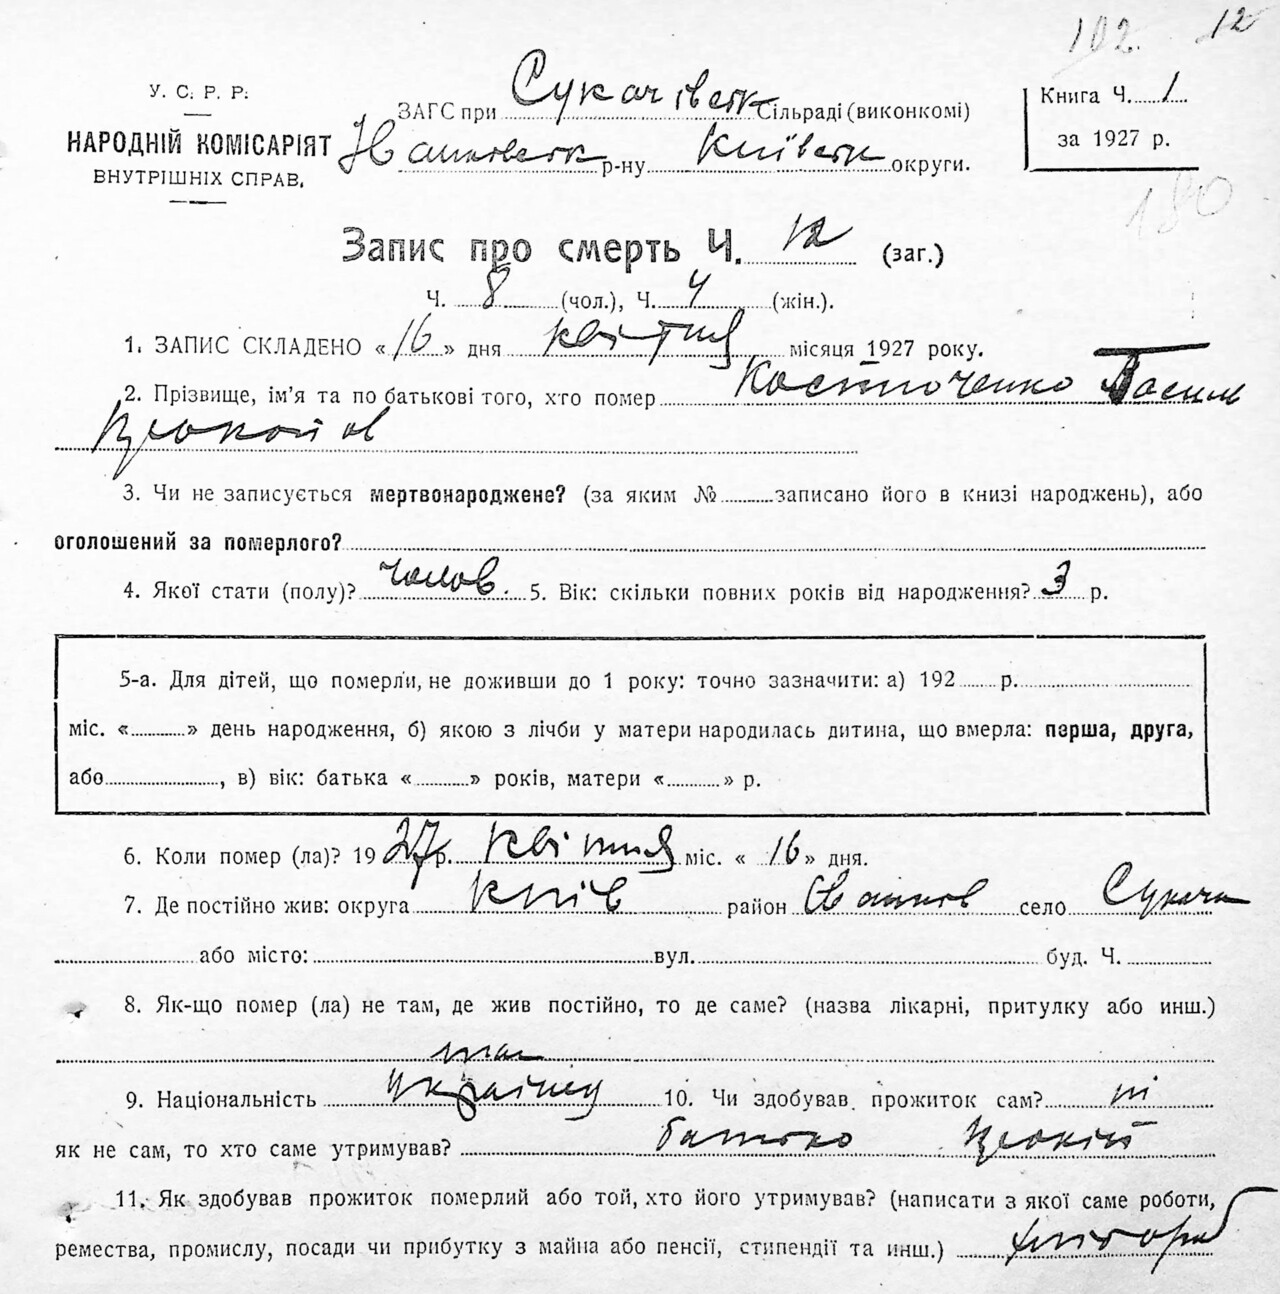 102. 12
У. С. Р. Р.
НАРОДНІЙ КОМІСАРІЯТ
ВНУТРІШНІХ СПРАВ.
ЗАГС при Сукачівськ Сільраді (виконкомі)
р-ну Київськ округи.
Книга Ч. 1
за 1927 р.
180
Запис про смерть Ч. 12 (заг.)
Ч. 8 (чол.), Ч. 4 (жін.).
1. ЗАПИС СКЛАДЕНО « 16 » дня квітня місяця 1927 року.
2. Прізвище, ім'я та по батькові того, хто помер Костюченко Василь
Прокопов
3. Чи не записується мертвонароджене? (за яким № записано його в книзі народжень), або
оголошений за померлого?
4. Якої стати (полу)? чолов. 5. Вік: скільки повних років від народження? 3 р.
5-а. Для дітей, що померли, не доживши до 1 року: точно зазначити: а) 192 р.
міс. « » день народження, б) якою з лічби у матери народилась дитина, що вмерла: перша, друга,
або , в) вік: батька « » років, матери « » р.
6. Коли помер (ла)? 1927 р. квітня міс. « 16 » дня.
7. Де постійно жив: округа Київ район село Сукачі
або місто: вул. буд. Ч.
8. Як-що помер (ла) не там, де жив постійно, то де саме? (назва лікарні, притулку або инш.)
там
9. Національність українец 10. Чи здобував прожиток сам? ні
як не сам, то хто саме утримував? батько Прокіп
11. Як здобував прожиток померлий або той, хто його утримував? (написати з якої саме роботи,
ремества, промислу, посади чи прибутку з майна або пенсії, стипендії та инш.) хлібороб